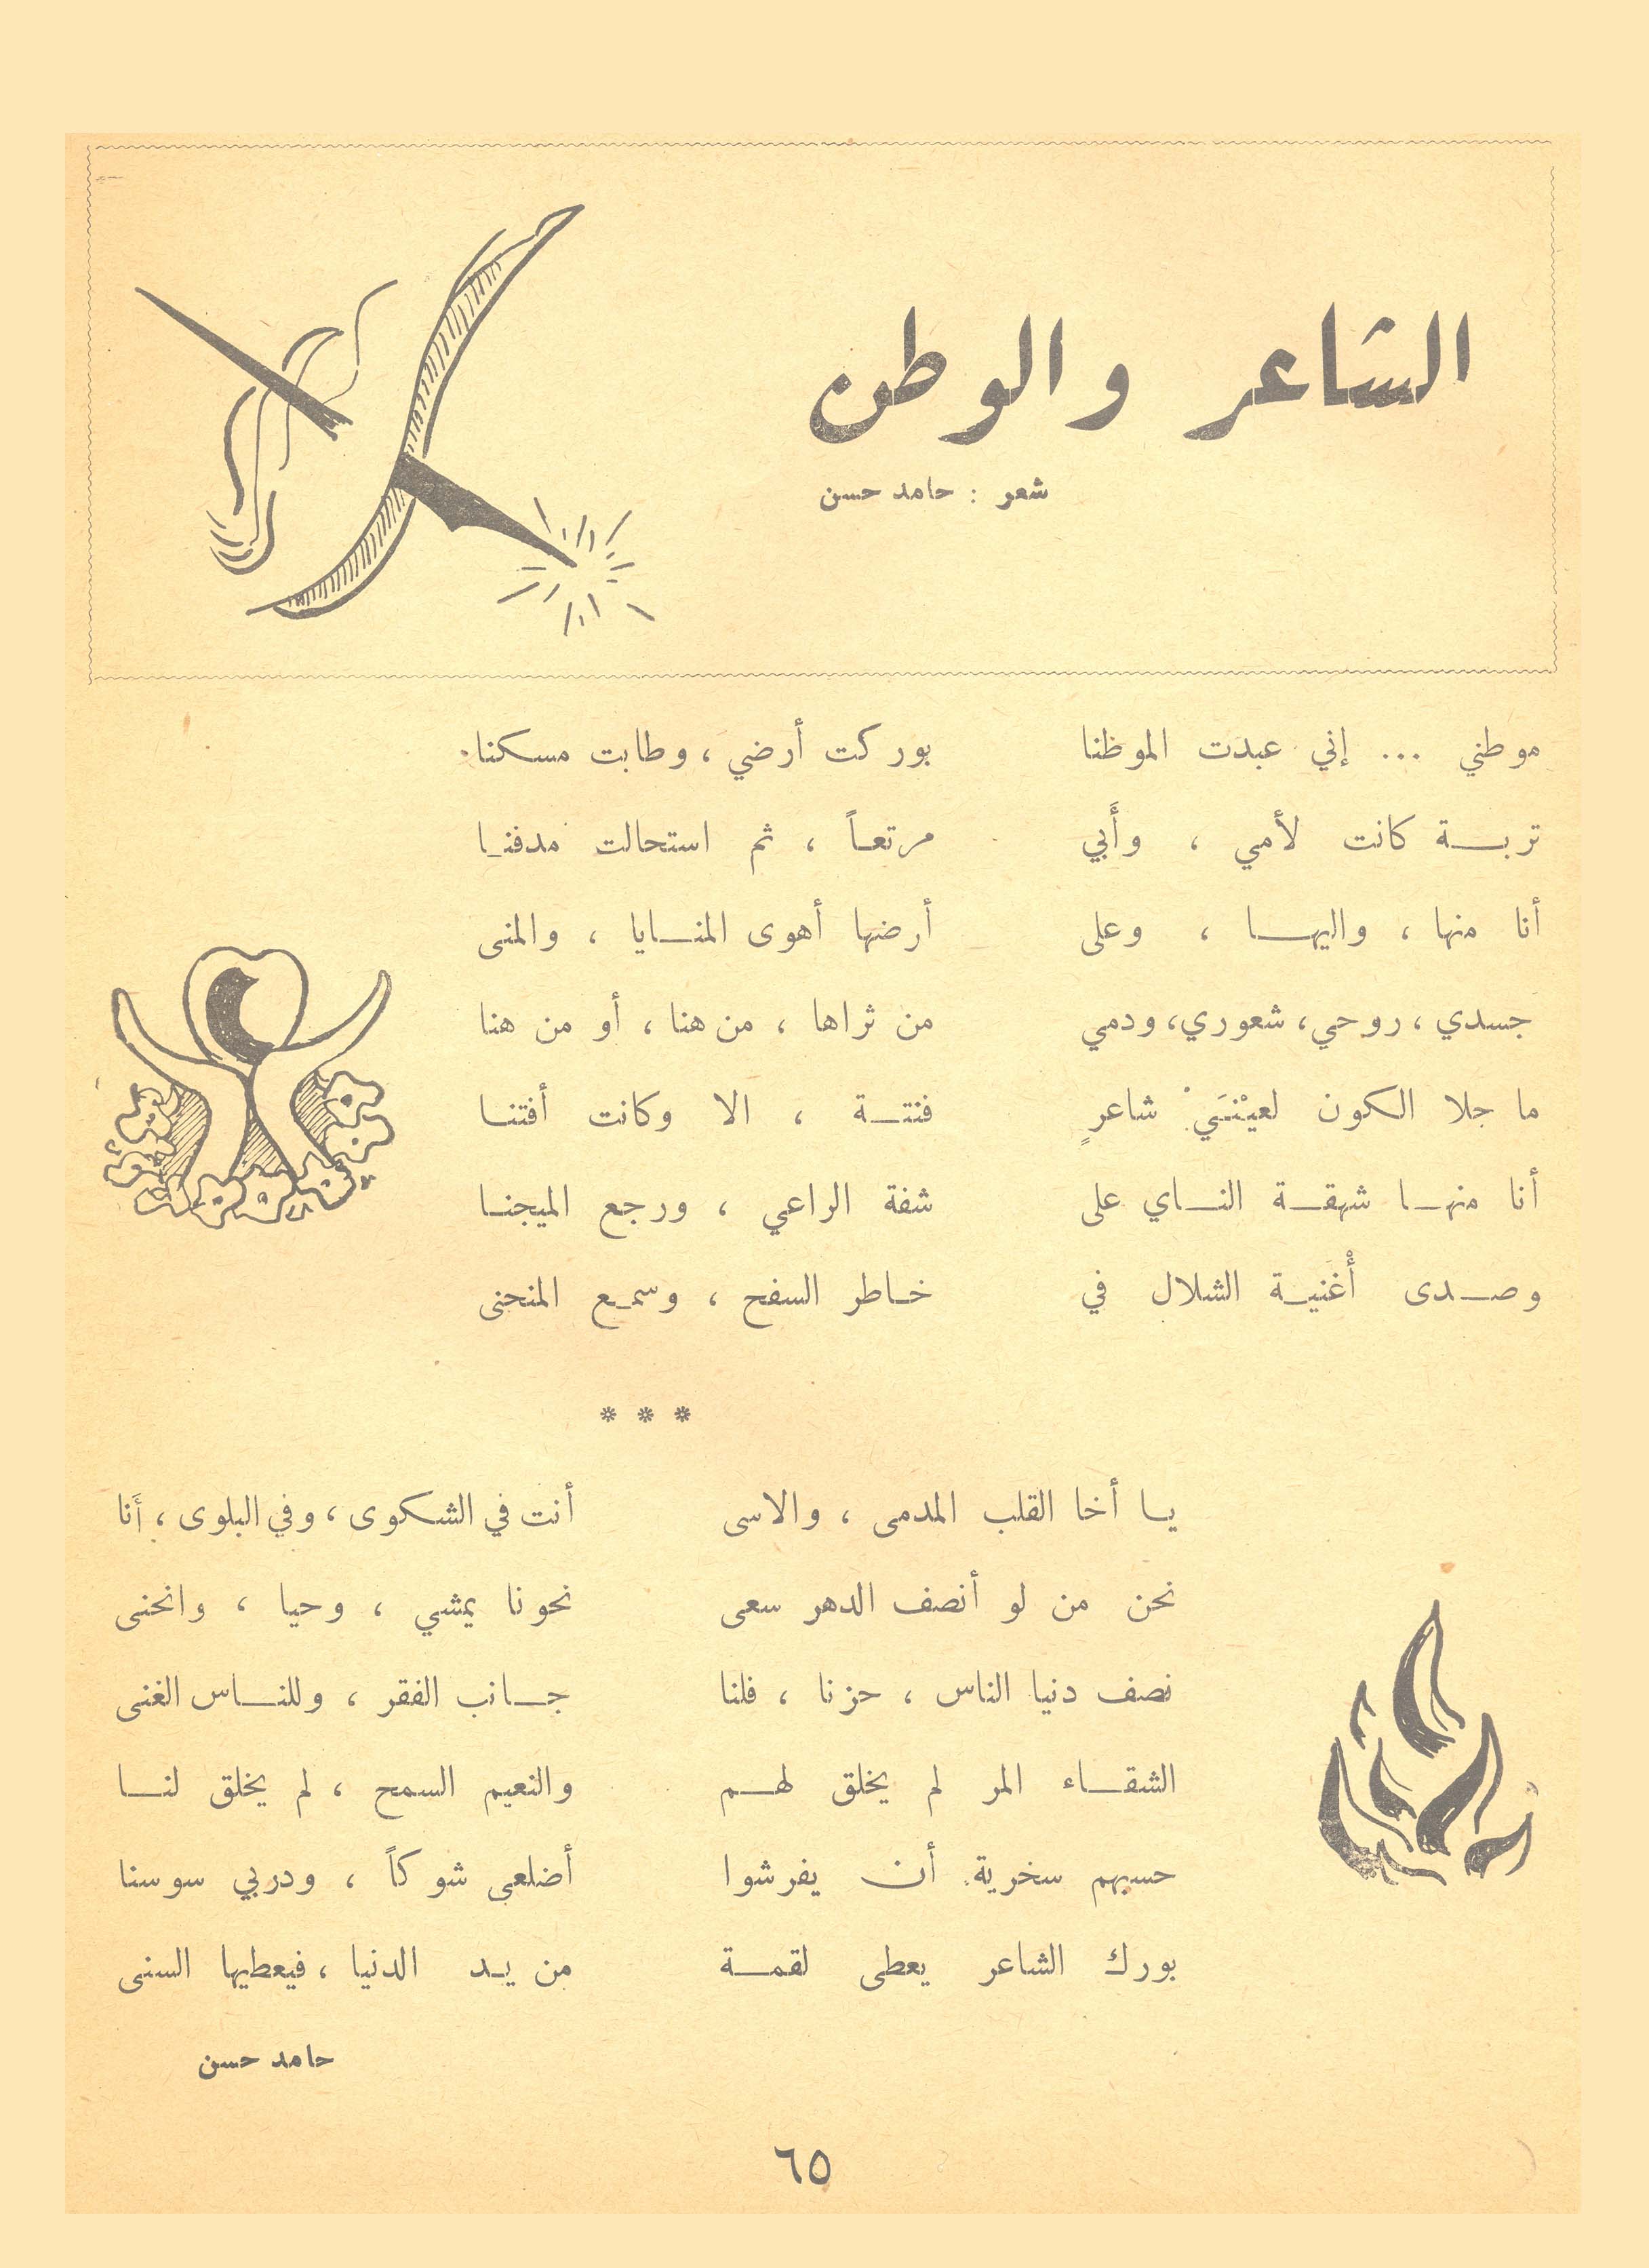 الشاعر والوطن
شعر : حامد حسن
موطني ... إني عبدت الموظنا بوركت أرضي ، وطابت مسكنا
تربة كانت لأمي ، وأَبي مرتعاً ، ثم استحالت مدفنا
أنا منها ، واليها ، وعلى أرضها أهوى المنايا ، والمنى
جسدي ، روحي ، شعوري ، ودمي من ثراها ، من هنا ، أو من هنا
ما جلا الكون لعيْنَيْ شاعرٍ فتنة ، الا وكانت أفتنا
أنا منها شهقة الناي على شفة الراعي ، ورجع الميجنا
وصدى أُغنية الشلال في خاطر السفح ، وسمع المنحنى
* * *
يا أخا القلب المدمى ، والاسى أنت في الشكوى ، وفي البلوى ، أَنا
نحن من لو أنصف الدهر سعى نحونا يمشي ، وحيا ، وانحنى
نصف دنيا الناس ، حزنا ، فلنا جانب الفقر ، وللناس الغنى
الشقاء المر لم يخلق لهم والنعيم السمح ، لم يخلق لنا
حسبهم سخرية أن يفرشوا أضلعي شوكاً ، ودربي سوسنا
بورك الشاعر يعطى لقمة من يد الدنيا ، فيعطيها السنى
حامد حسن
٦٥